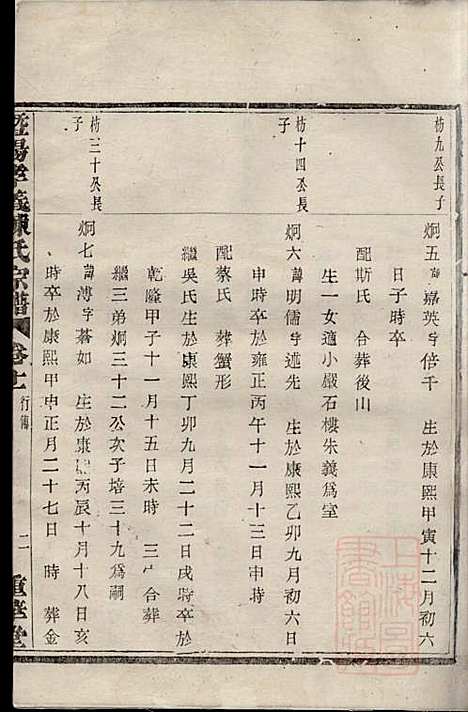 枋九公長子
炯五諱嘉英字倍千 生於康熙甲寅十二月初六
日子時卒
配斯氏 合葬後山
生一女適小嚴石樓朱義爲室
枋十四公長
子
炯六諱明儒字述先 生於康熙乙卯九月初六日
申時卒於雍正丙午十一月十三日申時
配蔡氏 葬蟹形
繼吳氏生於康熙丁卯九月二十二日戌時卒於
乾隆甲子十一月十五日未時 三 合葬
繼三弟炯三十二公次子培三十九爲嗣
枋三十公長
子
炯七諱溥字蒼如 生於康熙丙辰十月十八日亥
時卒於康熙甲申正月二十七日 時 葬金
暨陽孝義陳氏宗譜 卷 行傳 二 重華堂